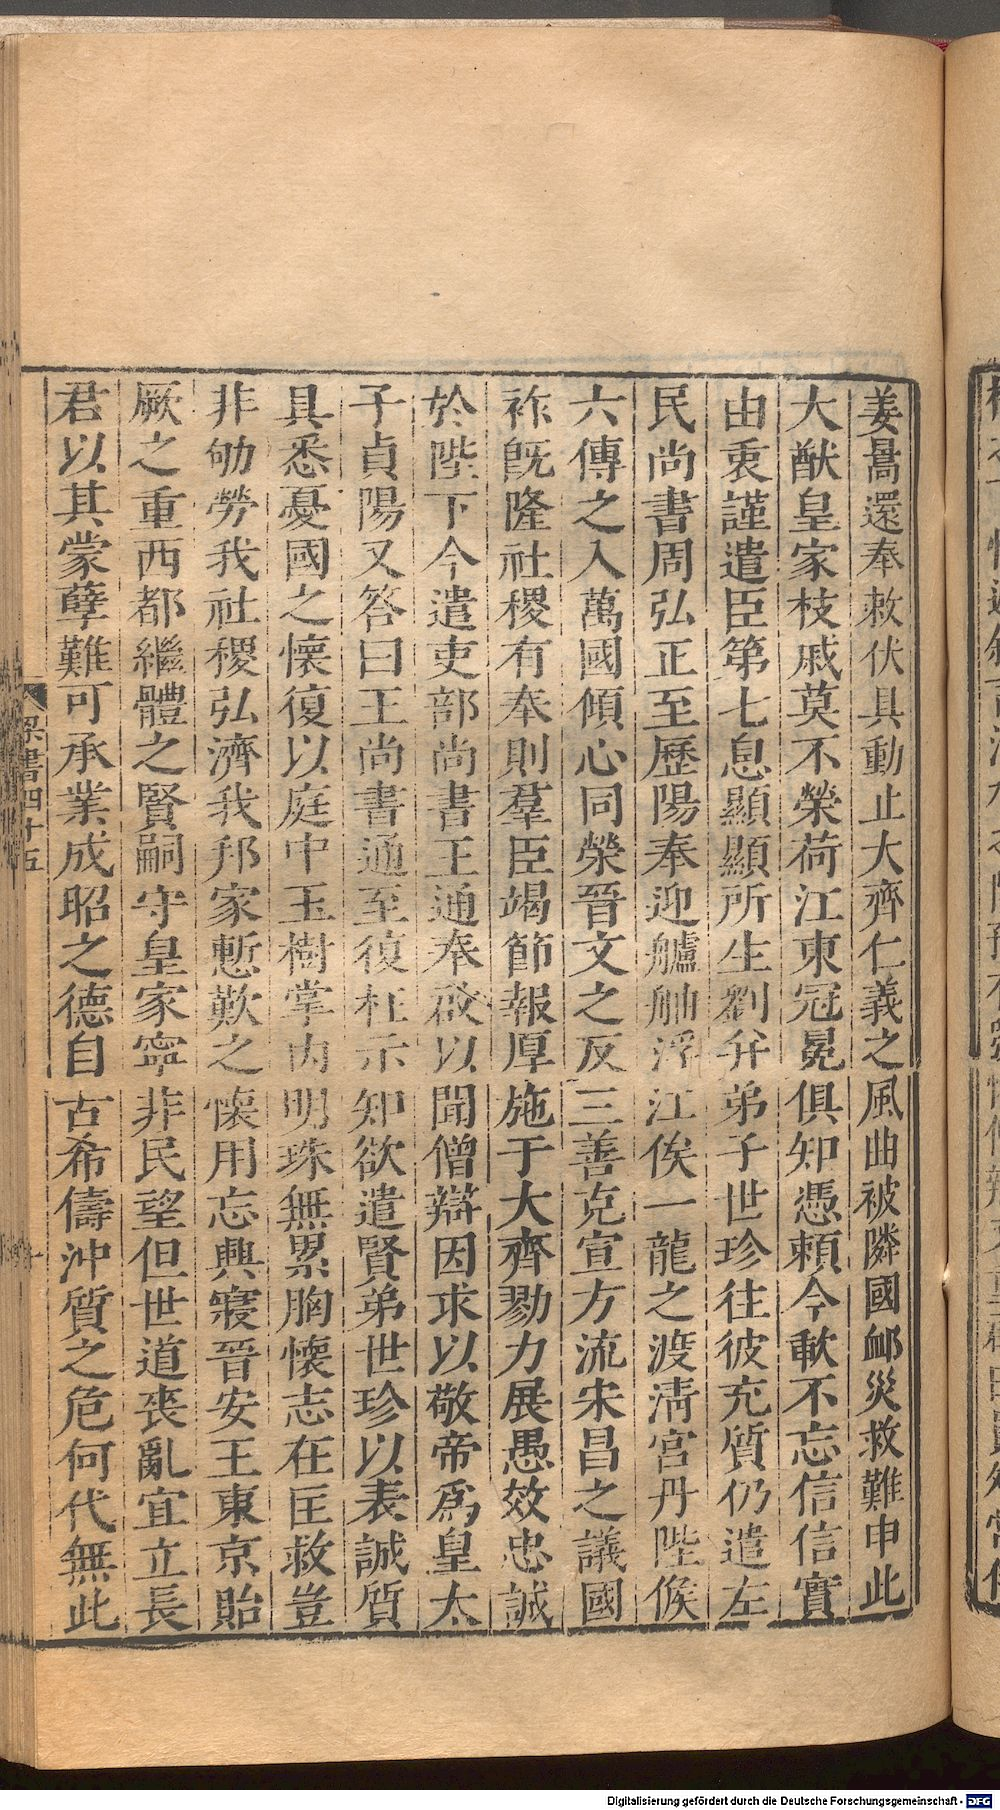 姜暠還奉敕伏具動止大齊仁義之風曲被隣國䘏災救難申此
大猷皇家枝戚莫不榮荷江東冠冕俱知憑賴今歃不忘信信實
由衷謹遣臣第七息顯顯所生劉并弟子世珍往彼充質仍遣左
民尚書周弘正至歷陽奉迎艫舳浮江俟一龍之渡淸宮丹陛候
六傳之入萬國傾心同榮晉文之反三善克宣方流宋昌之議國
祚旣隆社稷有奉則羣臣竭節報厚施于大齊勠力展愚效忠誠
於陛下今遣吏部尚書王通奉啟以聞僧辯因求以敬帝爲皇太
子貞陽又答曰王尚書通至復枉示知欲遣賢弟世珍以表誠質
具悉憂國之懷復以庭中玉樹掌內明珠無累胸懷志在匡救豈
非劬勞我社稷弘濟我邦家慙歎之懷用忘興寢晉安王東京貽
厥之重西都繼體之賢嗣守皇家寧非民望但世道喪亂宜立長
君以其蒙孽難可承業成昭之德自古希儔沖質之危何代無此
梁書四十五
Digitalisierung gefördert durch die Deutsche Forschungsgemeinschaft - DFG